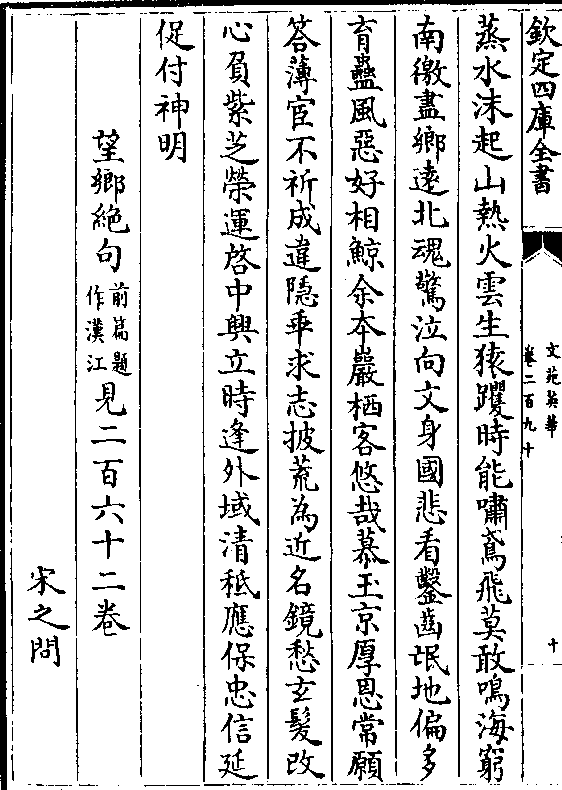 欽定四庫全書
文苑英華
卷二百九十
十
蒸水沫起山熱火雲生猿躩時能嘯鳶飛莫敢鳴海窮
南徼盡鄉遠北魂驚泣向文身國悲看鑿齒氓地偏多
育蠱風惡好相鯨余夲巖栖客悠哉慕玉京厚恩常願
答薄宦不祈成違隱乖求志披荒為近名鏡愁𤣥髮改
心負紫芝榮運啓中興立時逢外域清秪應保忠信延
促付神明
望鄉絶句前篇題作漢江見二百六十二卷
宋之問